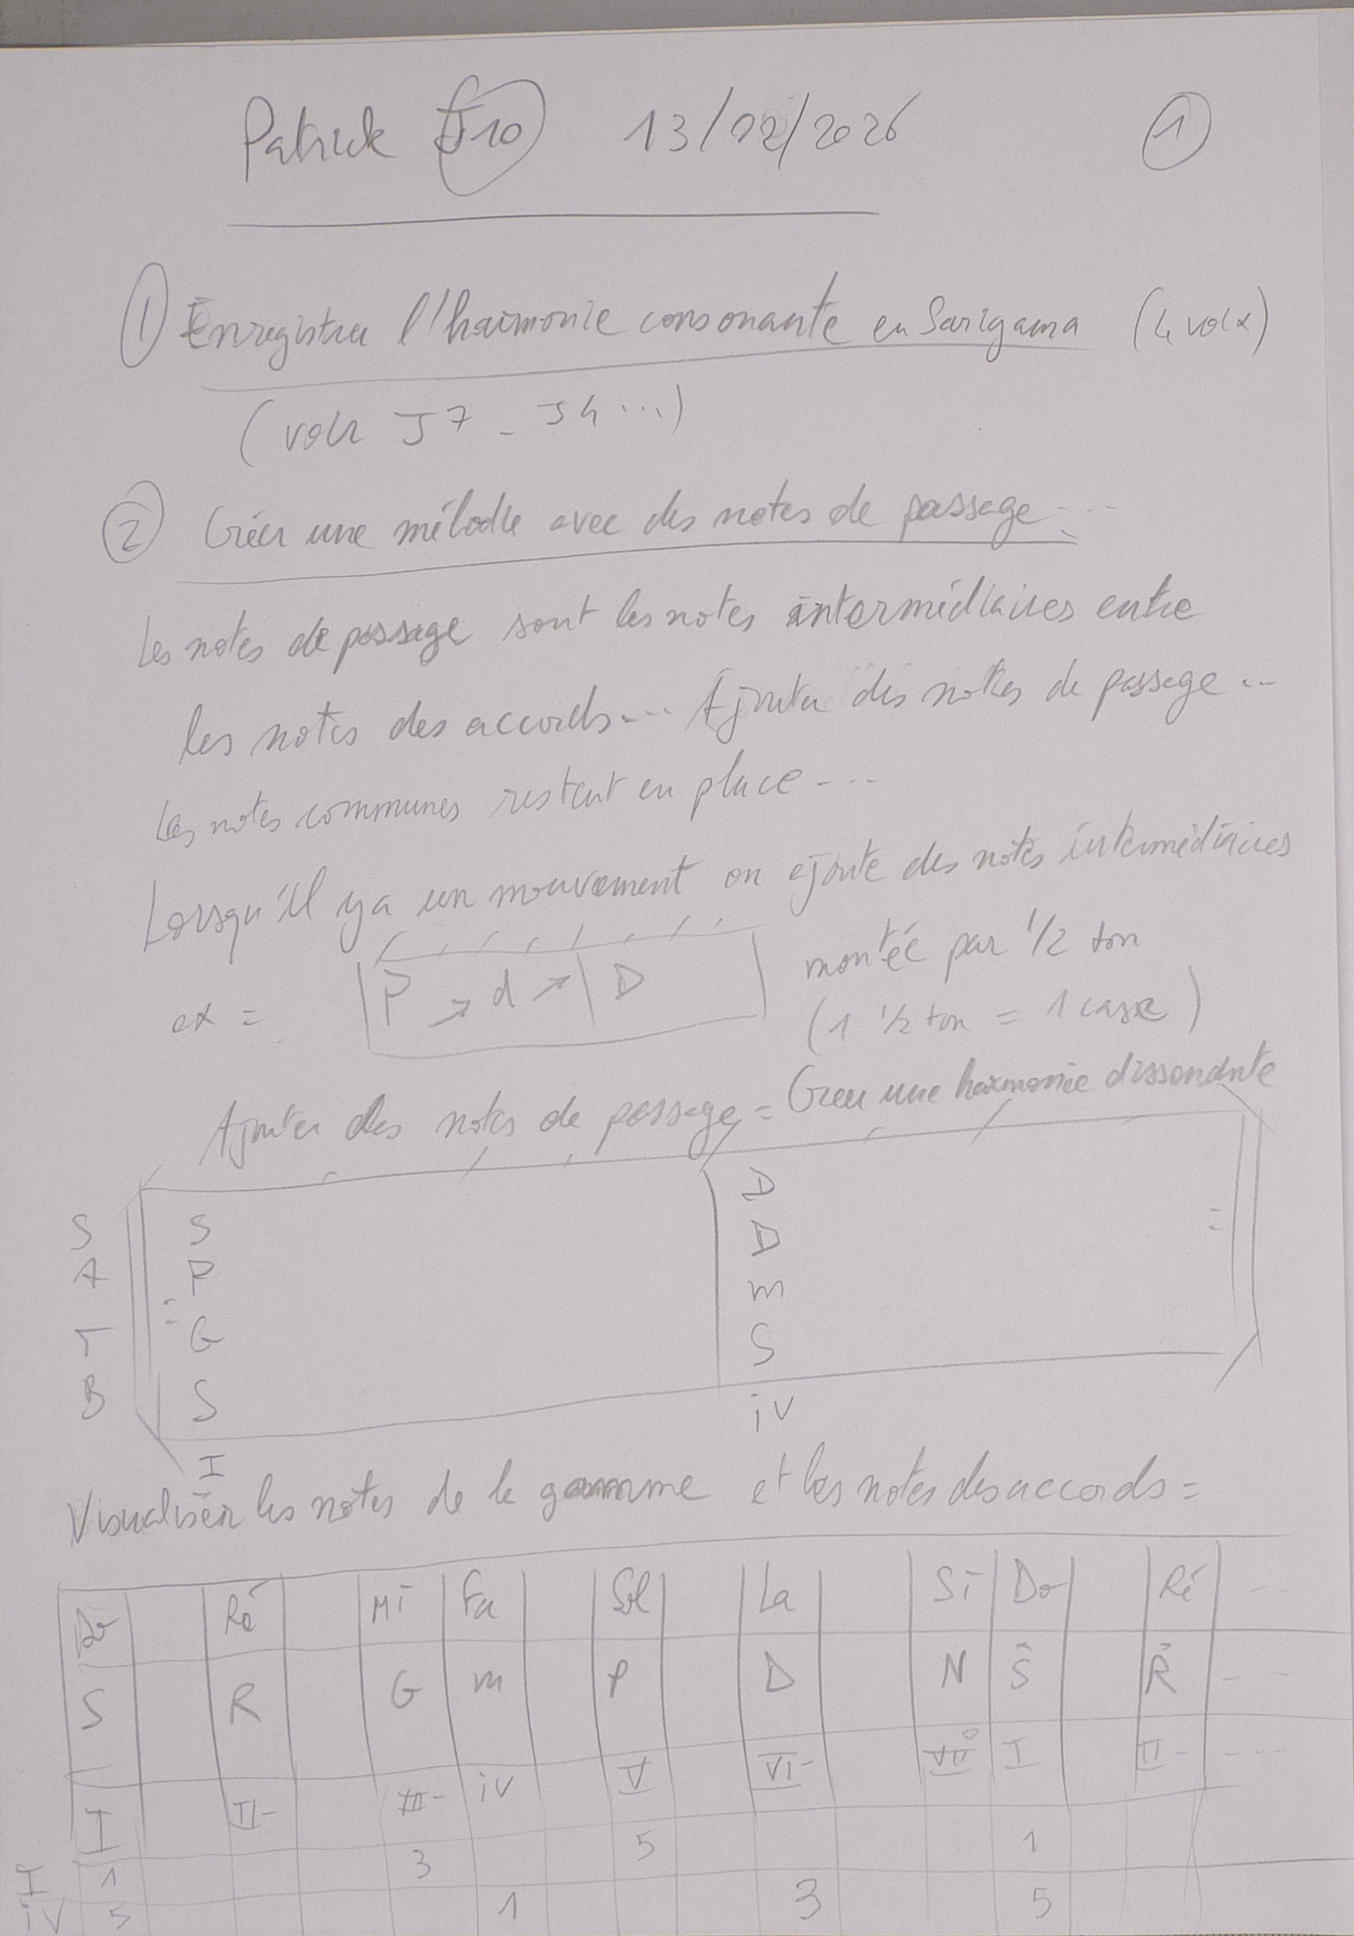 Patrick J10 13/02/2026 1
1 Enregistrer l'harmonie consonante en Sarigama (4 voix)
(voir J7 - J4 ...)
2 Créer une mélodie avec des notes de passage ...
Les notes de passage sont les notes intermédiaires entre
les notes des accords... Ajouter des notes de passage...
Les notes communes restent en place ...
Lorsqu'il y a un mouvement on ajoute des notes intermédiaires
ex = P → d → | D montée par 1/2 ton
(1 1/2 ton = 1 case)
Ajouter des notes de passage = Créer une harmonie dissonante
S S D
A P A
T G m
B S S
I iv
Visualiser les notes de la gamme et les notes des accords =
Do Ré Mi Fa Sol La Si Do Ré ...
S R G m P D N Ṡ Ṙ ...
I II- III- iv V VI- VII° I II- ...
I 1 3 5 1
iv 5 1 3 5